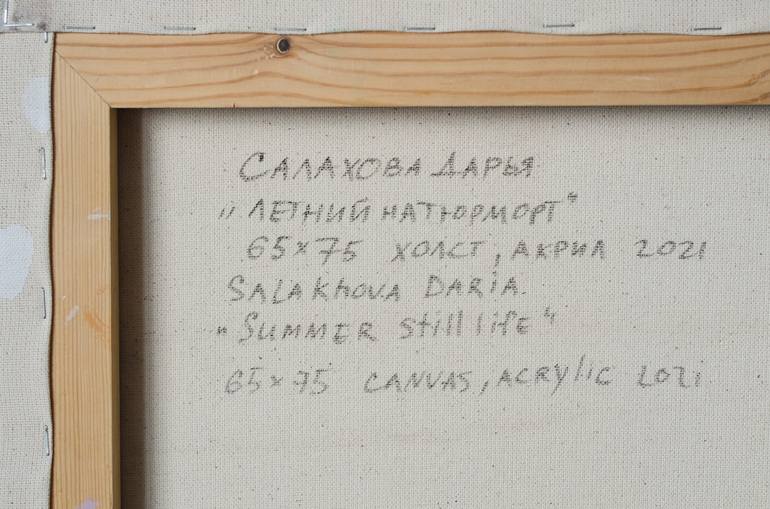 САЛАХОВА ДАРЬЯ
„ЛЕТНИЙ НАТЮРМОРТ“
65×75 ХОЛСТ, АКРИЛ 2021
SALAKHOVA DARIA.
„SUMMER still life“
65×75 CANVAS, ACRYLIC 2021